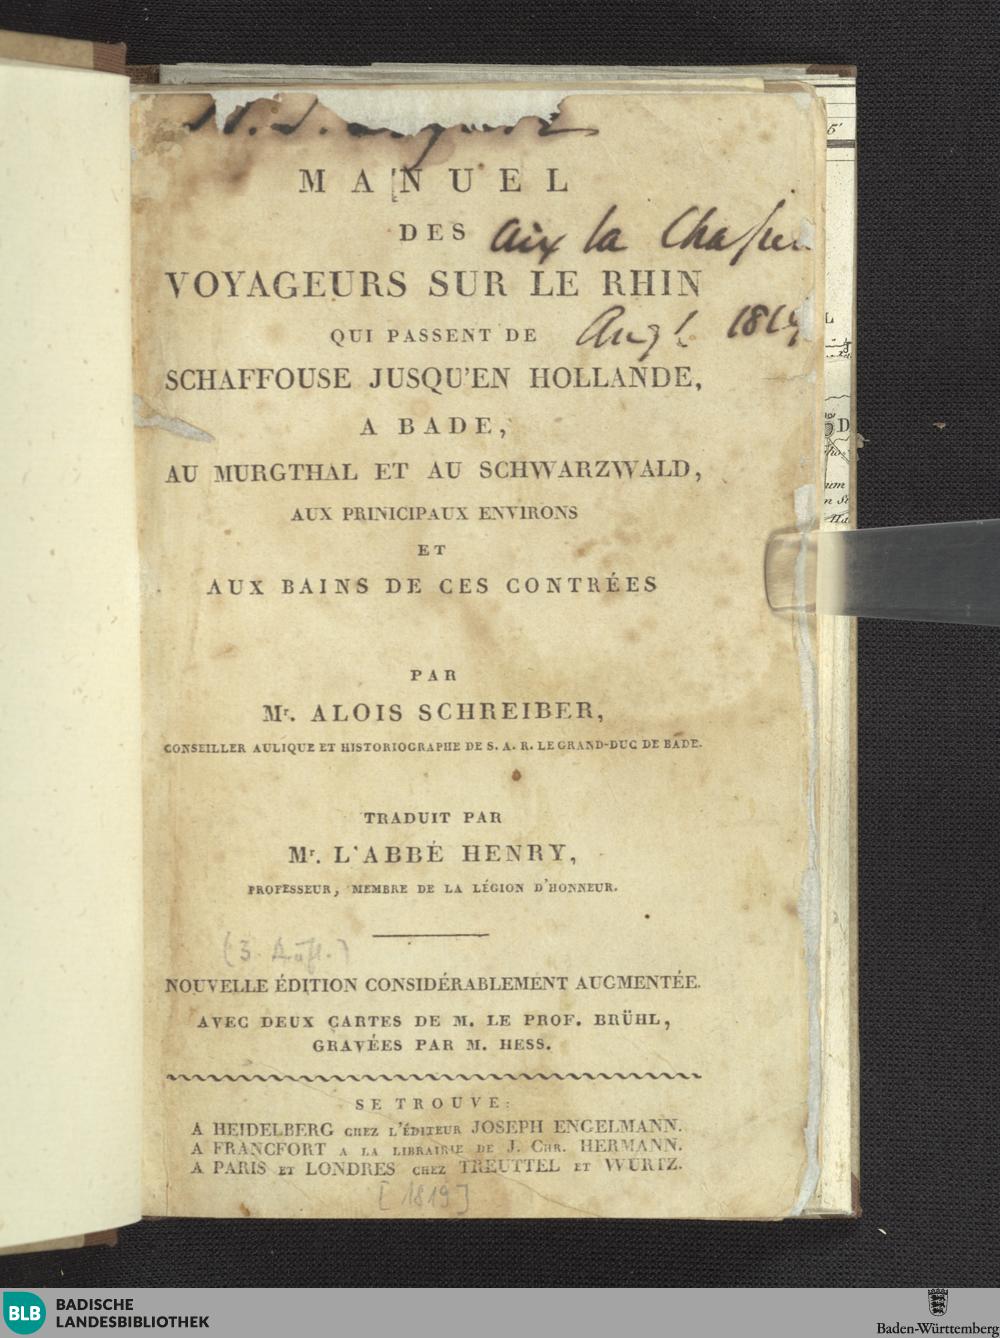 MANUEL
DES
Aix la Chapel
VOYAGEURS SUR LE RHIN
QUI PASSENT DE
Augt. 1819
SCHAFFOUSE JUSQU'EN HOLLANDE,
A BADE,
AU MURGTHAL ET AU SCHWARZWALD,
AUX PRINICIPAUX ENVIRONS
ET
AUX BAINS DE CES CONTRÉES
PAR
Mr. ALOIS SCHREIBER,
CONSEILLER AULIQUE ET HISTORIOGRAPHE DE S. A. R. LE GRAND-DUC DE BADE.
TRADUIT PAR
Mr. L'ABBÉ HENRY,
PROFESSEUR, MEMBRE DE LA LÉGION D'HONNEUR.
(3. Aufl.)
NOUVELLE ÉDITION CONSIDÉRABLEMENT AUGMENTÉE.
AVEC DEUX CARTES DE M. LE PROF. BRÜHL,
GRAVÉES PAR M. HESS.
SE TROUVE:
A HEIDELBERG CHEZ L'ÉDITEUR JOSEPH ENGELMANN.
A FRANCFORT A LA LIBRAIRIE DE J. CHR. HERMANN.
A PARIS ET LONDRES CHEZ TREUTTEL ET WURTZ.
[1819]
BLB BADISCHE
LANDESBIBLIOTHEK
Baden-Württemberg